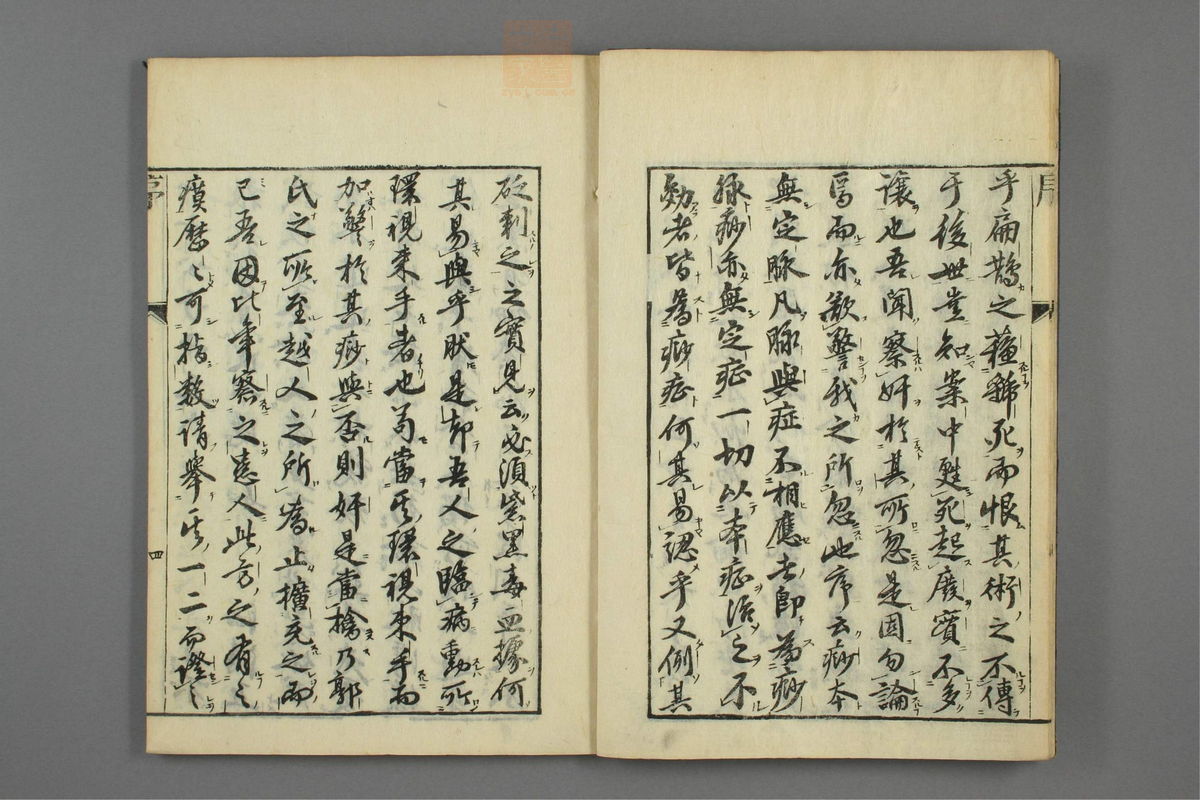 乎扁鵲之蘓虢死而恨其術之不傳
于後世豈知案中甦死起廢實不多
讓也吾聞察奸於其所忽是固勿論
焉而亦敵警我之所忽也序云痧本
無定脉凡脉與症不相應者即為痧
脉痧亦無定症一切以本症治之不
効者皆為痧症何其易認乎又例其
砭刺之之實見云必須紫黑毒血據何
其易與乎肰是却吾人之臨病動所
環視束手者也苟當其環視束手而
加詧於其痧與否則奸是當擒乃郭
氏之所至越人之所為止擴充之而
已吾因比年察之患人此方之有之
癀歷々可指数請舉其一二而證之
序
四